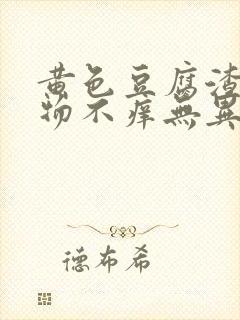 黄色豆腐渣
物不痒無異
德布希